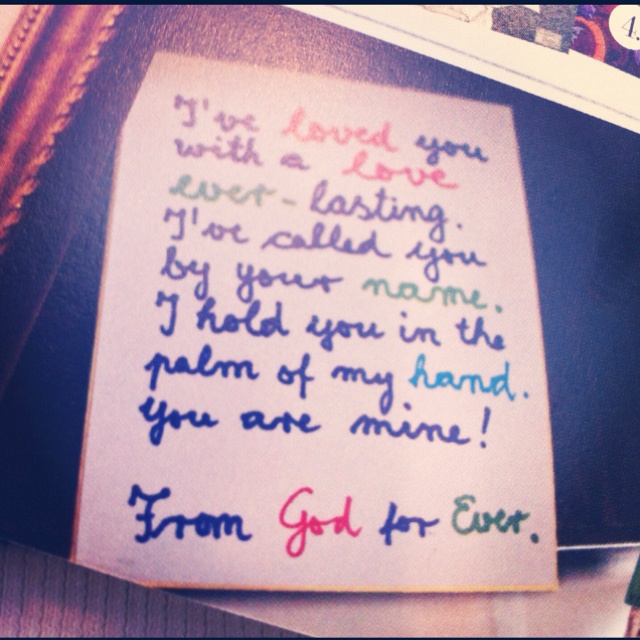 4.
I've loved you
with a love
ever-lasting.
I've called you
by your name.
I hold you in the
palm of my hand.
you are mine!
From God for Ever.